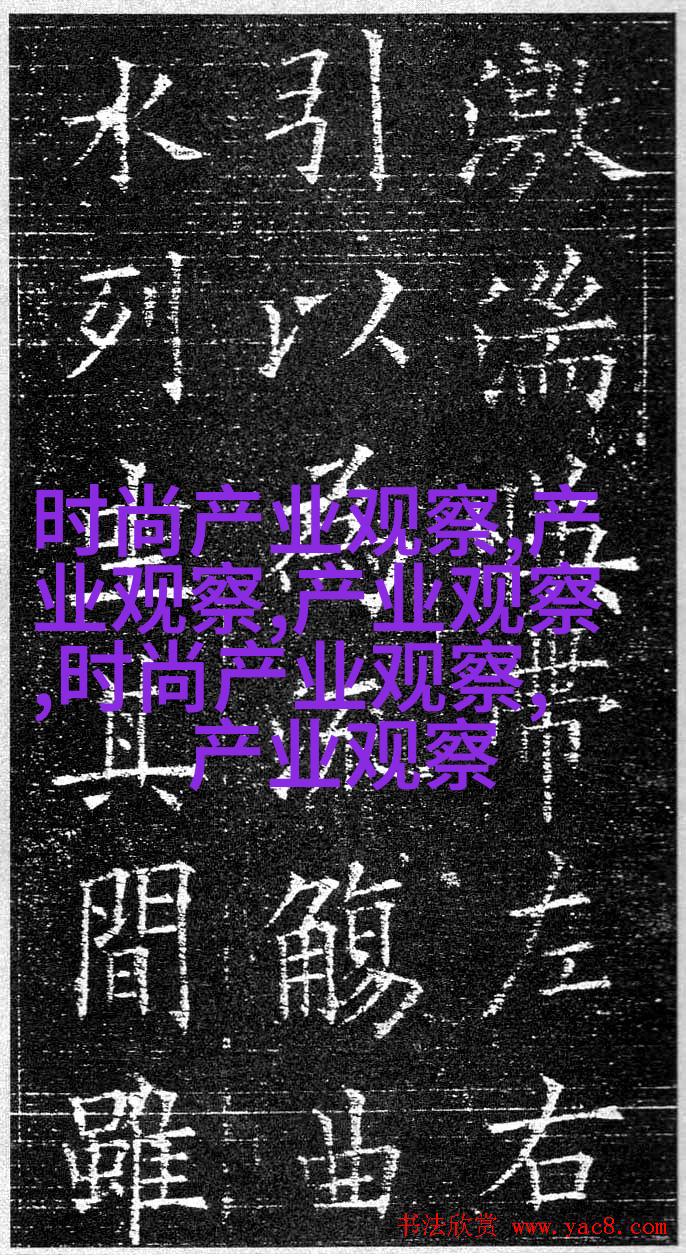 激湍帶左右
引以為流觴曲
水列坐其間雖
时尚产业观察,产
业观察,产业观察
,时尚产业观察,
产业观察
书法欣赏 www.yac8.com